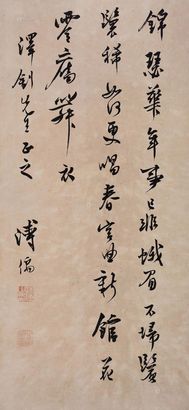 錦瑟華年事已非蛾眉不埽鬢
鬟稀如何更唱春宮曲新館花
零舊舞衣
澤釗先生正之
溥